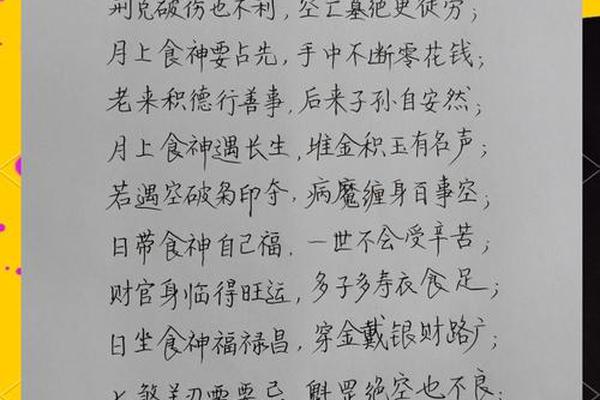 刑克破伤也不利,空亡墓绝更徒劳;
月上食神要占先,手中不断零花钱;
老来积德行善事,后来子孙自安然;
月上食神遇长生,堆金积玉有名声;
若遇空破枭印夺,病魔缠身百事空;
日带食神自己福,一世不会受辛苦;
财官身临得旺运,多子多寿衣食足;
日坐食神福禄昌,穿金戴银财路广;
七煞羊刃要要忌,魁罡绝空也不良;